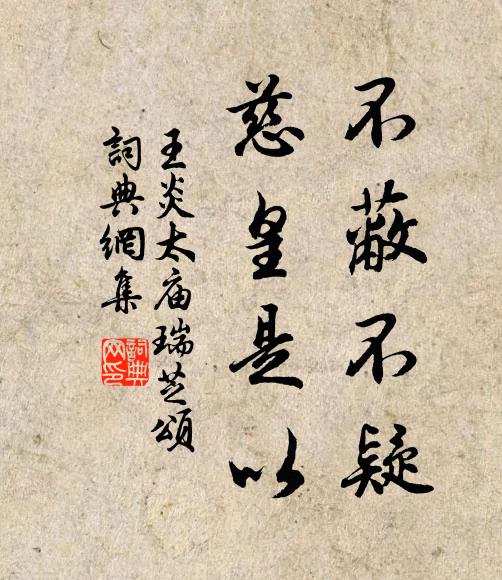 不蔽不疑
慈皇是以
王炎太庙瑞芝頌
詞典網集
詞典
网印